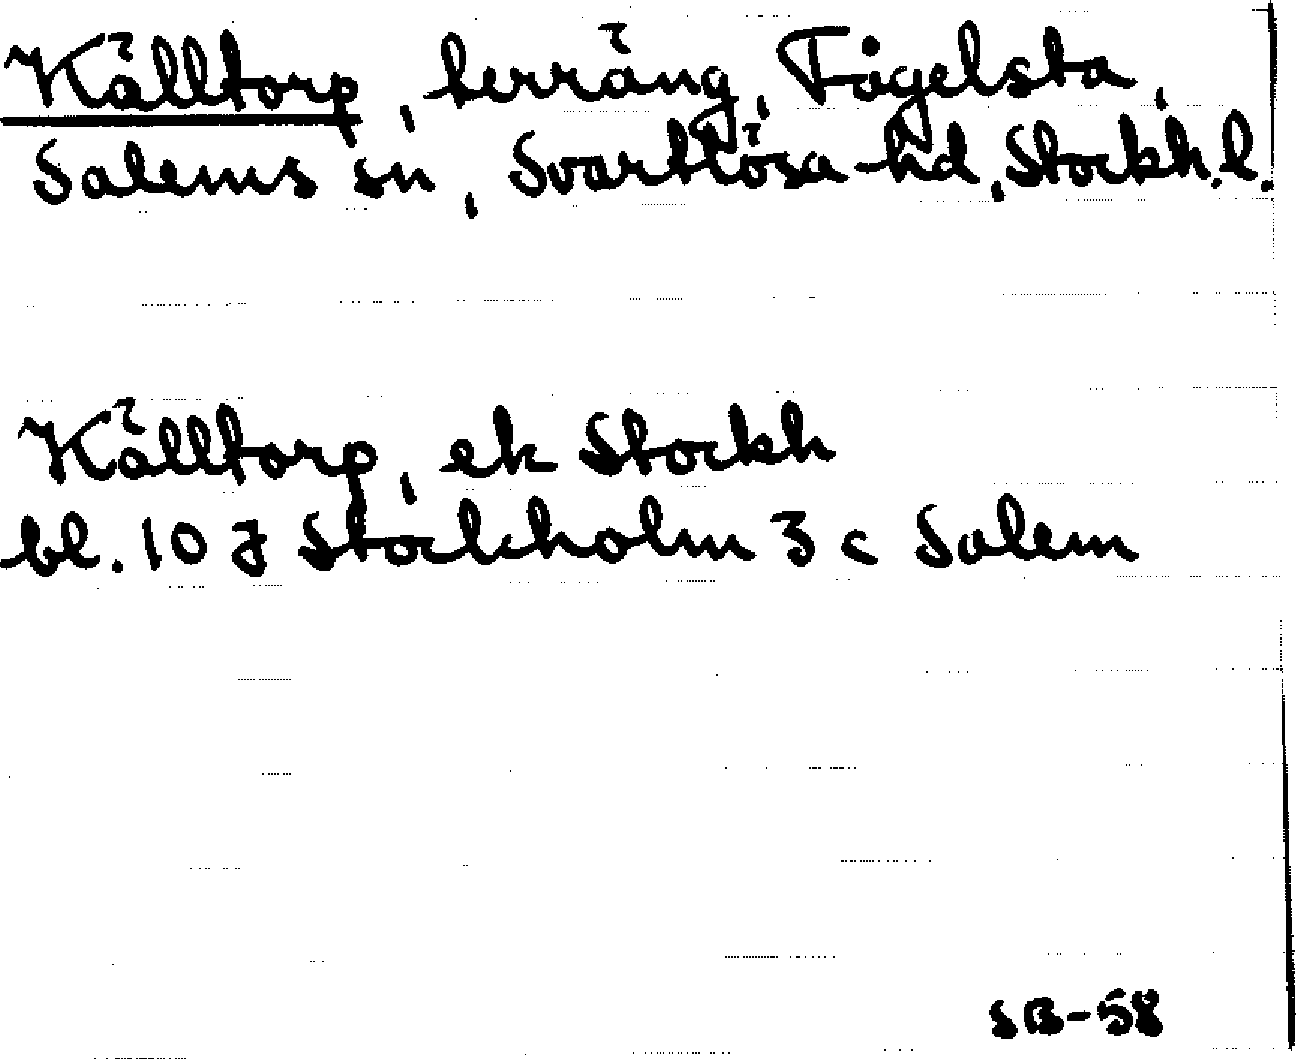 Källtorp, terräng, Fågelsta,
Salems sn, Svartlösa hd, Stockh. l.
Källtorp, ek Stockh
bl. 10 J Stockholm 3 c Salem
SB-58